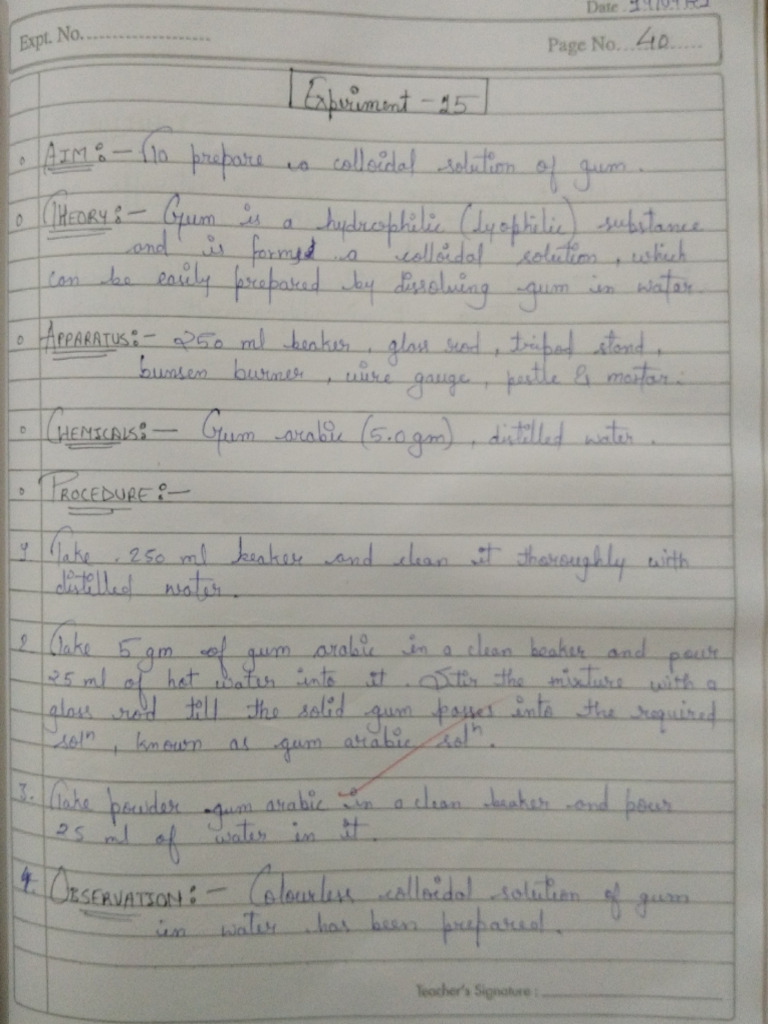 Date
Expt. No.
Page No. 40
Experiment - 15
AIM:- To prepare a colloidal solution of gum.
THEORY:- Gum is a hydrophilic (lyophilic) substance
and is formed a colloidal solution, which
can be easily prepared by dissolving gum in water.
APPARATUS:- 250 ml beaker, glass rod, tripod stand,
bunsen burner, wire gauge, pestle & mortar.
CHEMICALS:- Gum arabic (5.0 gm), distilled water.
PROCEDURE:-
1. Take 250 ml beaker and clean it thoroughly with
distilled water.
2. Take 5 gm of gum arabic in a clean beaker and pour
25 ml of hot water into it. Stir the mixture with a
glass rod till the solid gum passes into the required
solⁿ, known as gum arabic solⁿ.
3. Take powder gum arabic in a clean beaker and pour
25 ml of water in it.
4. OBSERVATION:- Colourless colloidal solution of gum
in water has been prepared.
Teacher's Signature :